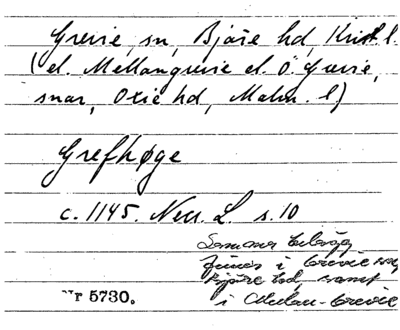 Grevie sn, Bjäre hd, Krist. l.
(el. Mellangrevie el. Ö. Grevie,
snar, Oxie hd, Malm. l.)
Grefhøge
c. 1145. Necr. L. s. 10
Samma belägg
finns i Grevie sn,
Bjäre hd, samt
i Mellan-Grevie
Nr 5730.